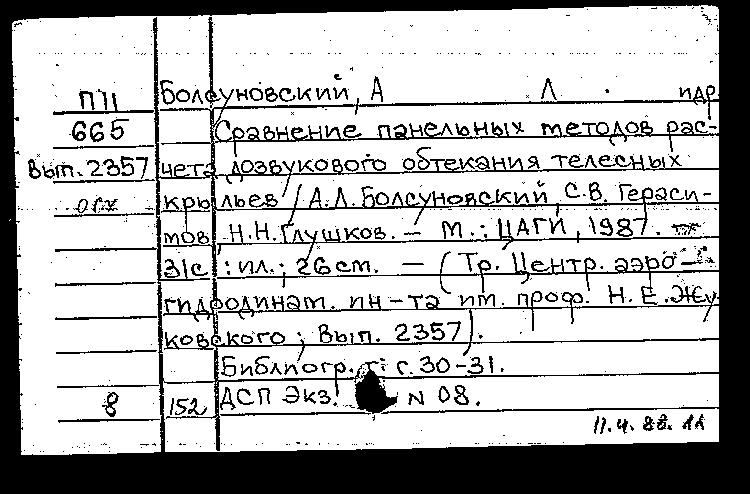 П11 Болсуновский, А Л. и др.
665 Сравнение панельных методов рас-
Вып. 2357 чета дозвукового обтекания телесных
крыльев / А.Л. Болсуновский, С.В. Гераси-
мов, Н.Н. Глушков. — М.: ЦАГИ, 1987. —
31с. : ил.; 26 см. — (Тр. Центр. аэро-
гидродинат. ин-та им. проф. Н.Е. Жу
ковского; Вып. 2357).
Библиогр.: с. 30-31.
8 152 ДСП Экз. N 08.